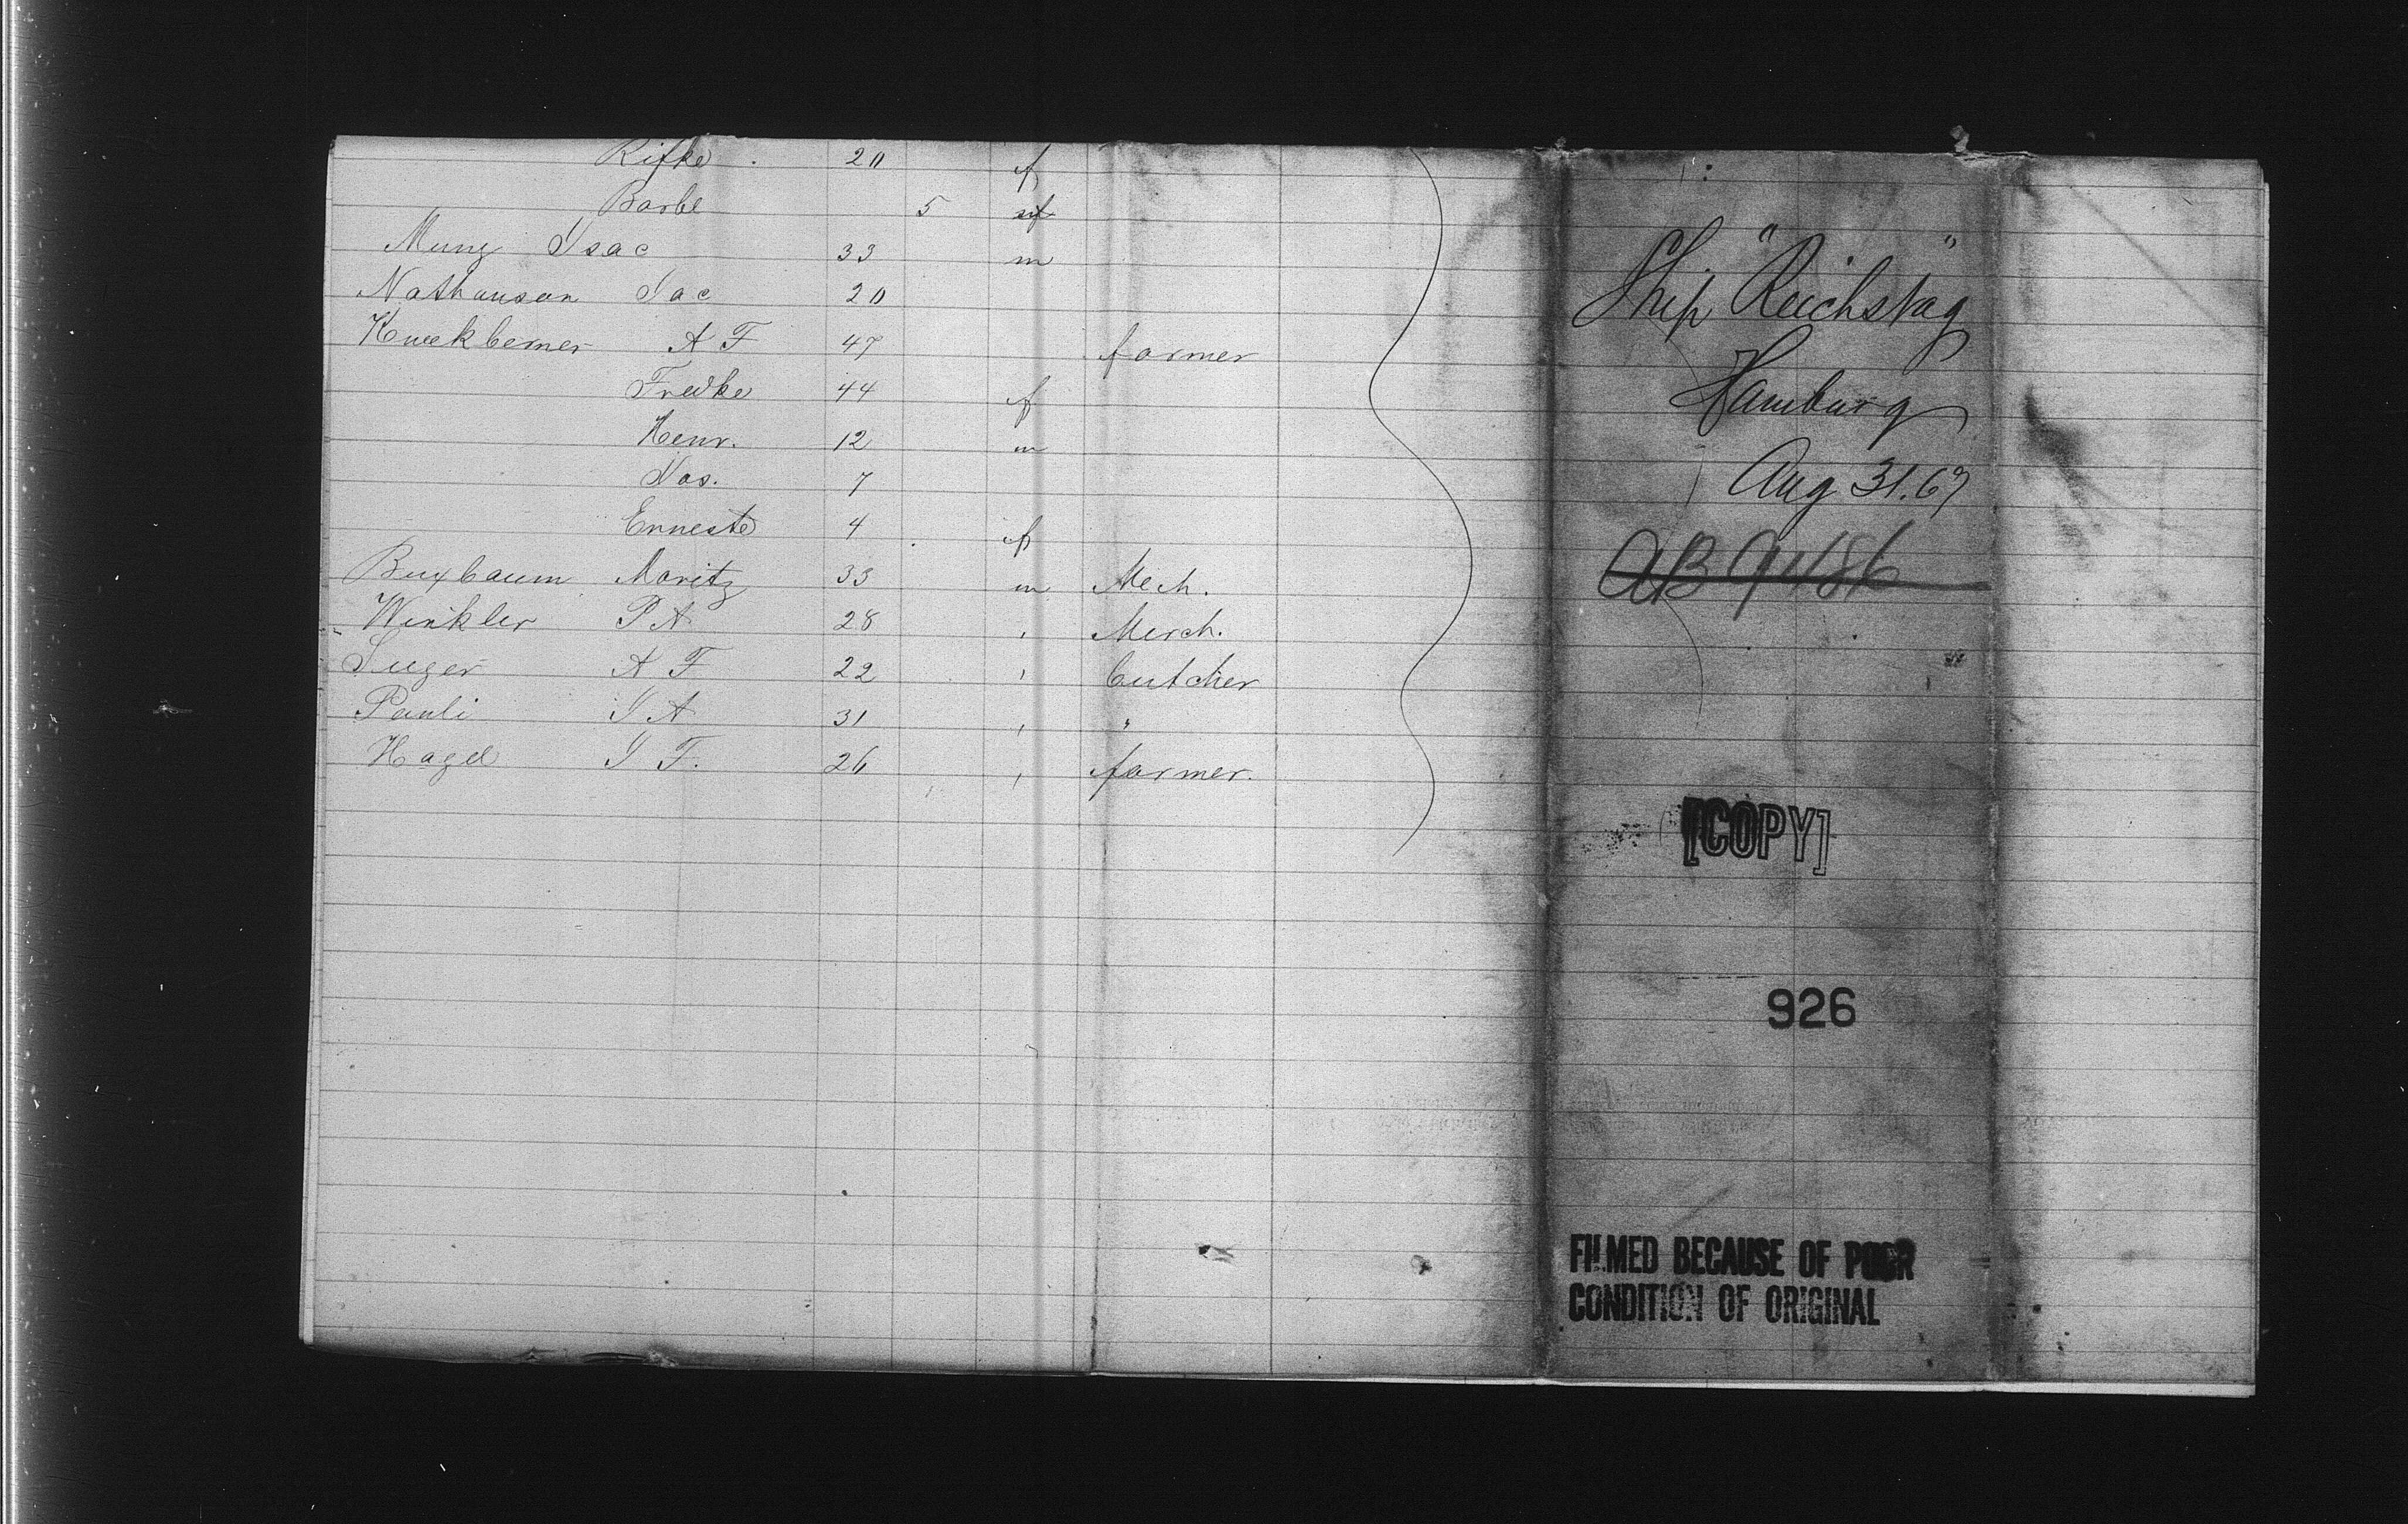 Rifke 20 f
Barbe 5 f
Munz Isac 33 m
Nathanson Isac 20
A F 47 farmer
Fredke 44 f
Henr. 12 m
Jos. 7
Erneste 4 f
Buxbaum Moritz 33 m Mech.
Winkler P A 28 " Merch.
A F 22 " butcher
Pauli J A 31 " "
Hagel J F. 26 " farmer.
Ship "Reichstag"
Hamburg
Aug 31.69
AB 9486
[COPY]
926
FILMED BECAUSE OF POOR
CONDITION OF ORIGINAL